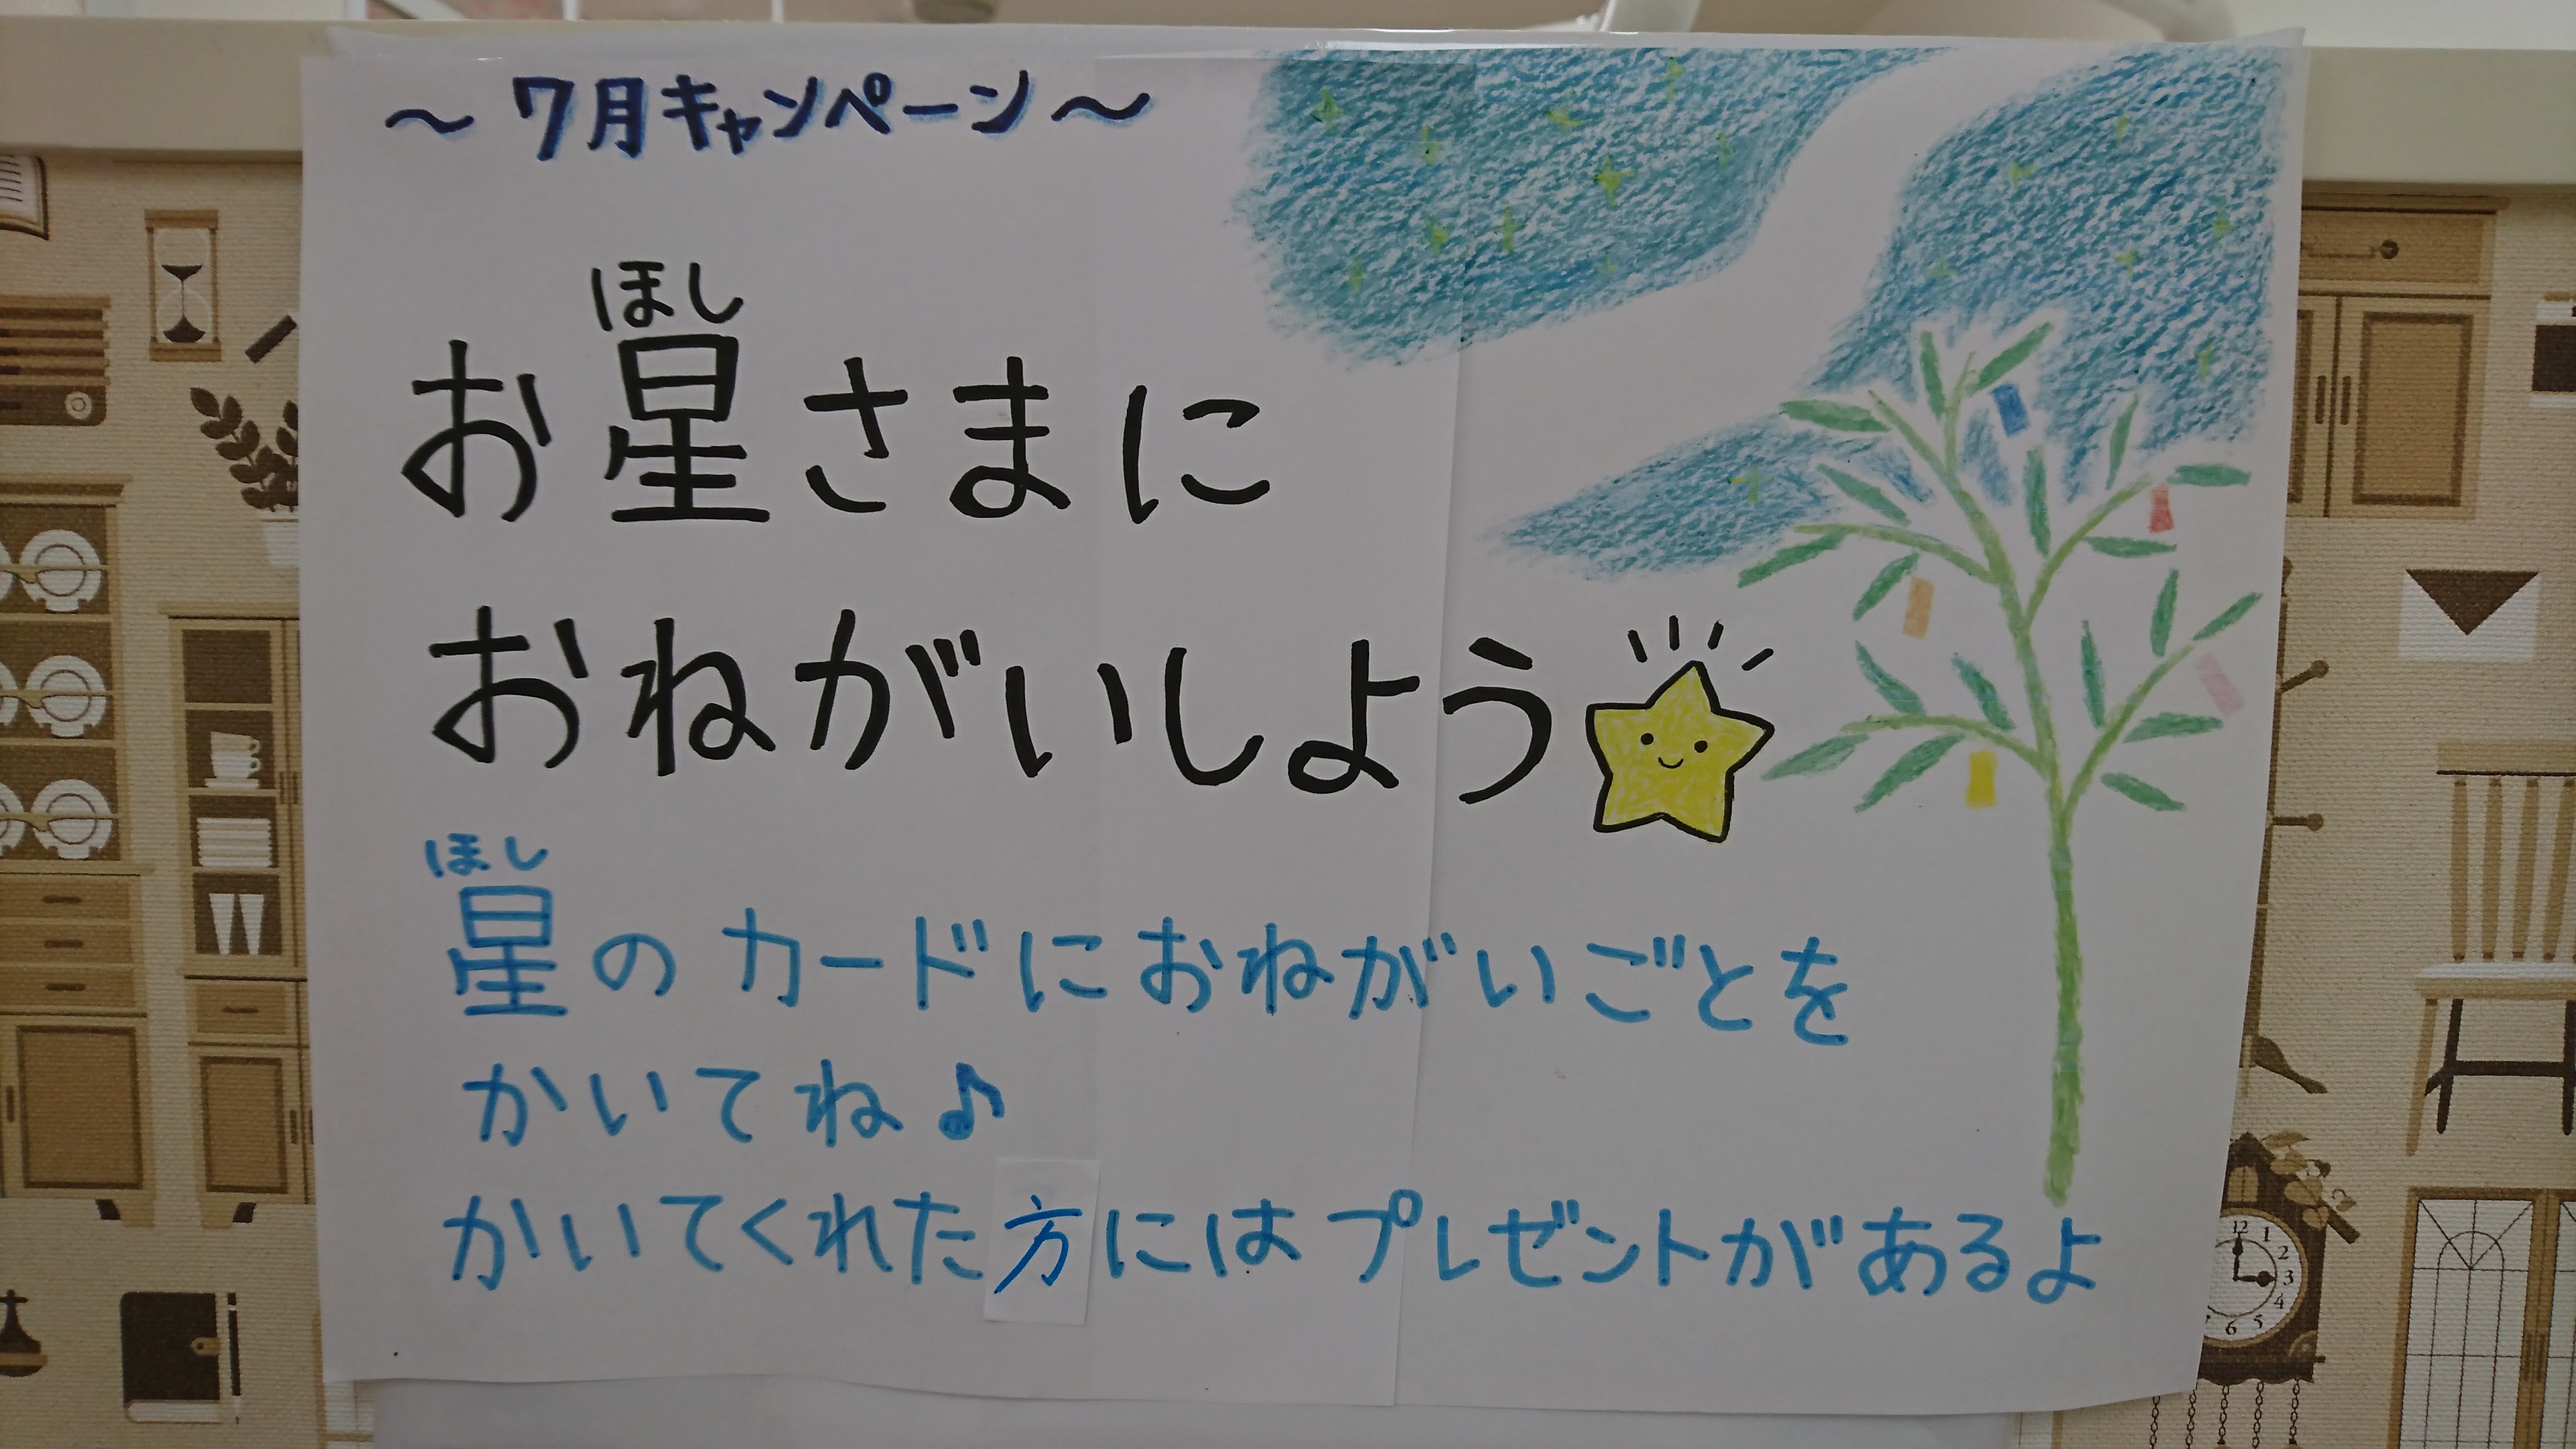 ～7月キャンペーン～
ほし
お星さまに
おねがいしよう
ほし
星のカードにおねがいごとを
かいてね♪
かいてくれた方にはプレゼントがあるよ
12
1
2
3
4
5
6